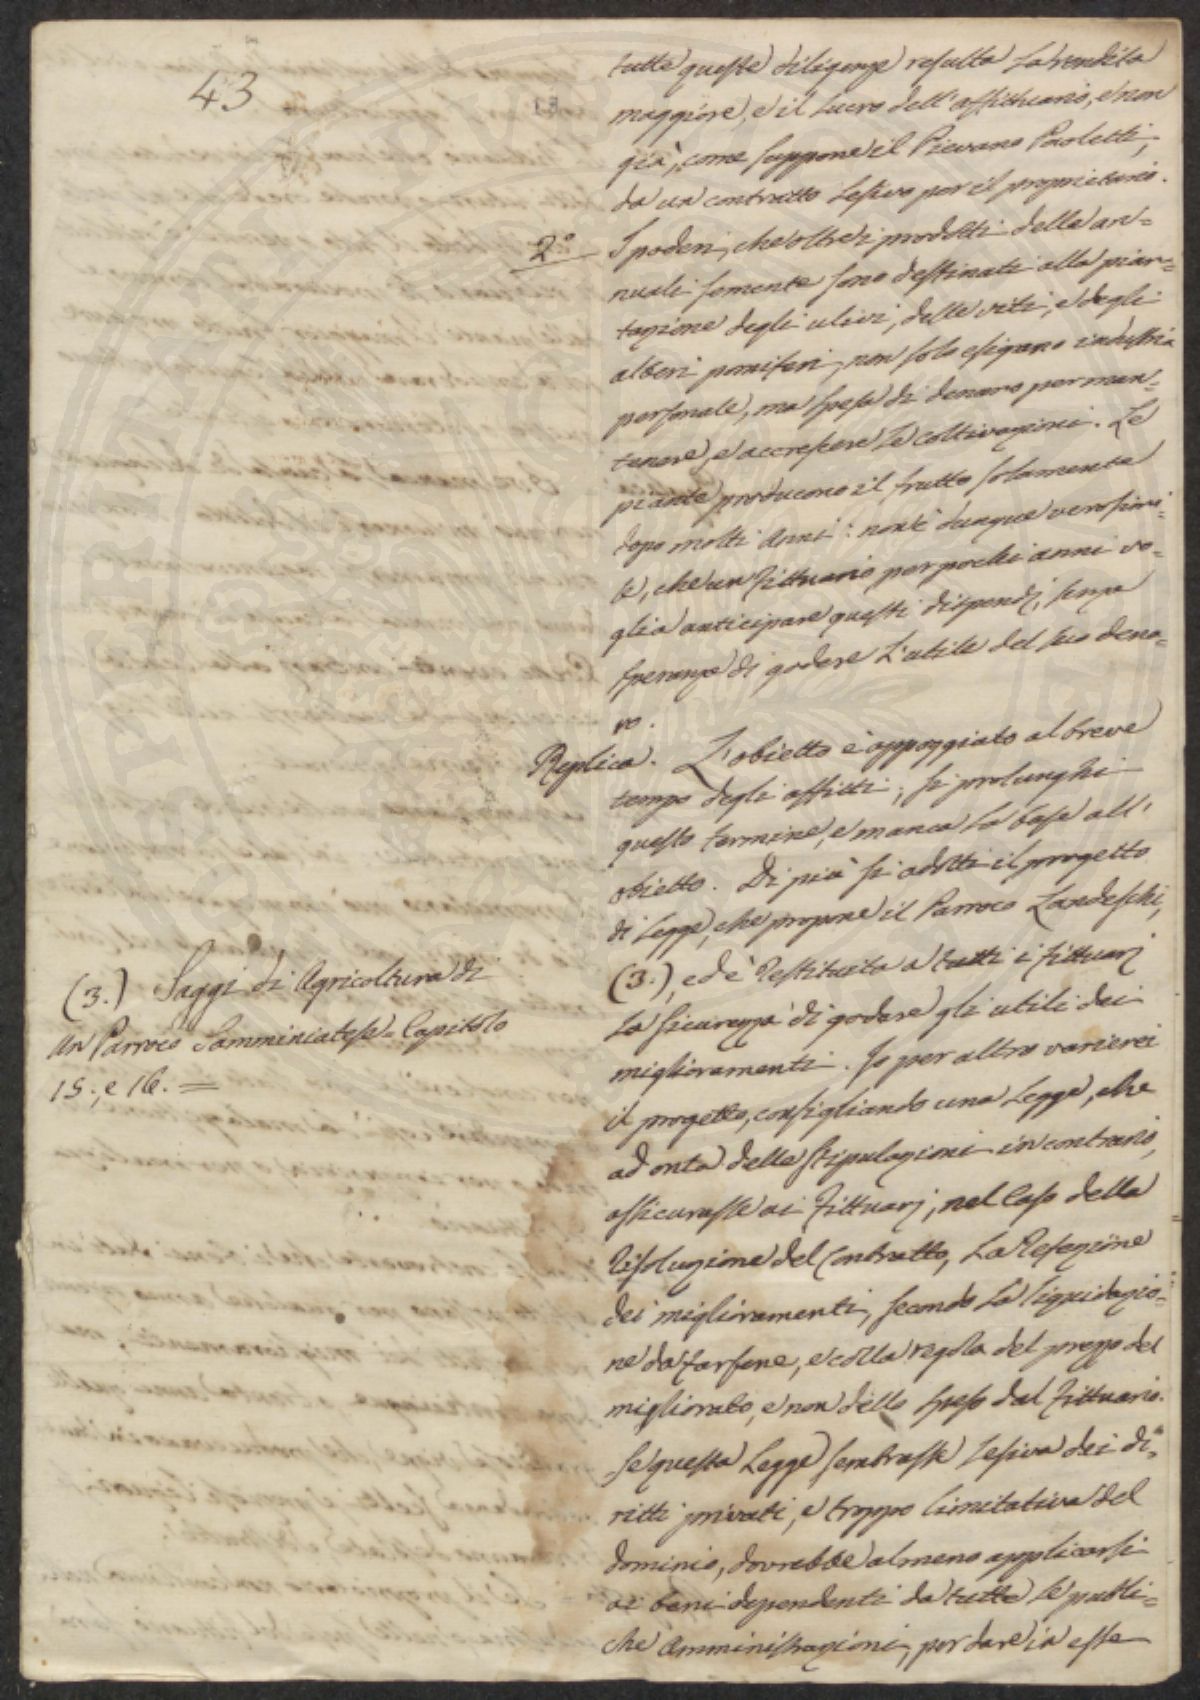 43
tutte queste diligenze resulta la rendita
maggiore, e il lucro dell'affittuario, e non
già, come suppone il Pievano Paoletti,
da un contratto lesivo per il proprietario.
2.° I poderi, che oltre i prodotti delle an=
nuali semente sono destinati alla pian=
tazione degli ulivi, delle viti, e degli
alberi pomiferi, non solo esigano industria
personale, ma spesa di denaro per man=
tenere, e accrescere le coltivazioni. Le
piante producono il frutto solamente
dopo molti anni: non è dunque verosimi=
le, che un fittuario per pochi anni vo=
glia anticipare questi dispendj, senza
speranza di godere l'utile del suo dena=
ro.
Replica. L'obietto è appoggiato al breve
tempo degli affitti; si prolunghi
questo termine, e manca la base all'
obietto. Di più si adotti il progetto
di Legge, che propone il Parroco Landeschi,
(3.), ed è restituita a tutti i fittuarj
la sicurezza di godere gli utili dei
miglioramenti. Io per altro varierei
il progetto, consigliando una Legge, che
ad onta delle stipulazioni in contrario,
assicurasse ai Fittuarj, nel caso della
risoluzione del Contratto, la refezione
dei miglioramenti, secondo la liquidazio=
ne da farsene, e colla regola del prezzo del
migliorato, e non dello speso dal Fittuario.
Se questa Legge sembrasse lesiva dei di=
ritti privati, e troppo limitativa del
dominio, dovrebbe almeno applicarsi
ai beni dependenti da tutte le pubbli=
che Amministrazioni, per dare in esse
(3.) Saggi di Agricoltura di
un Parroco Samminiatese. Capitolo
15., e 16. =